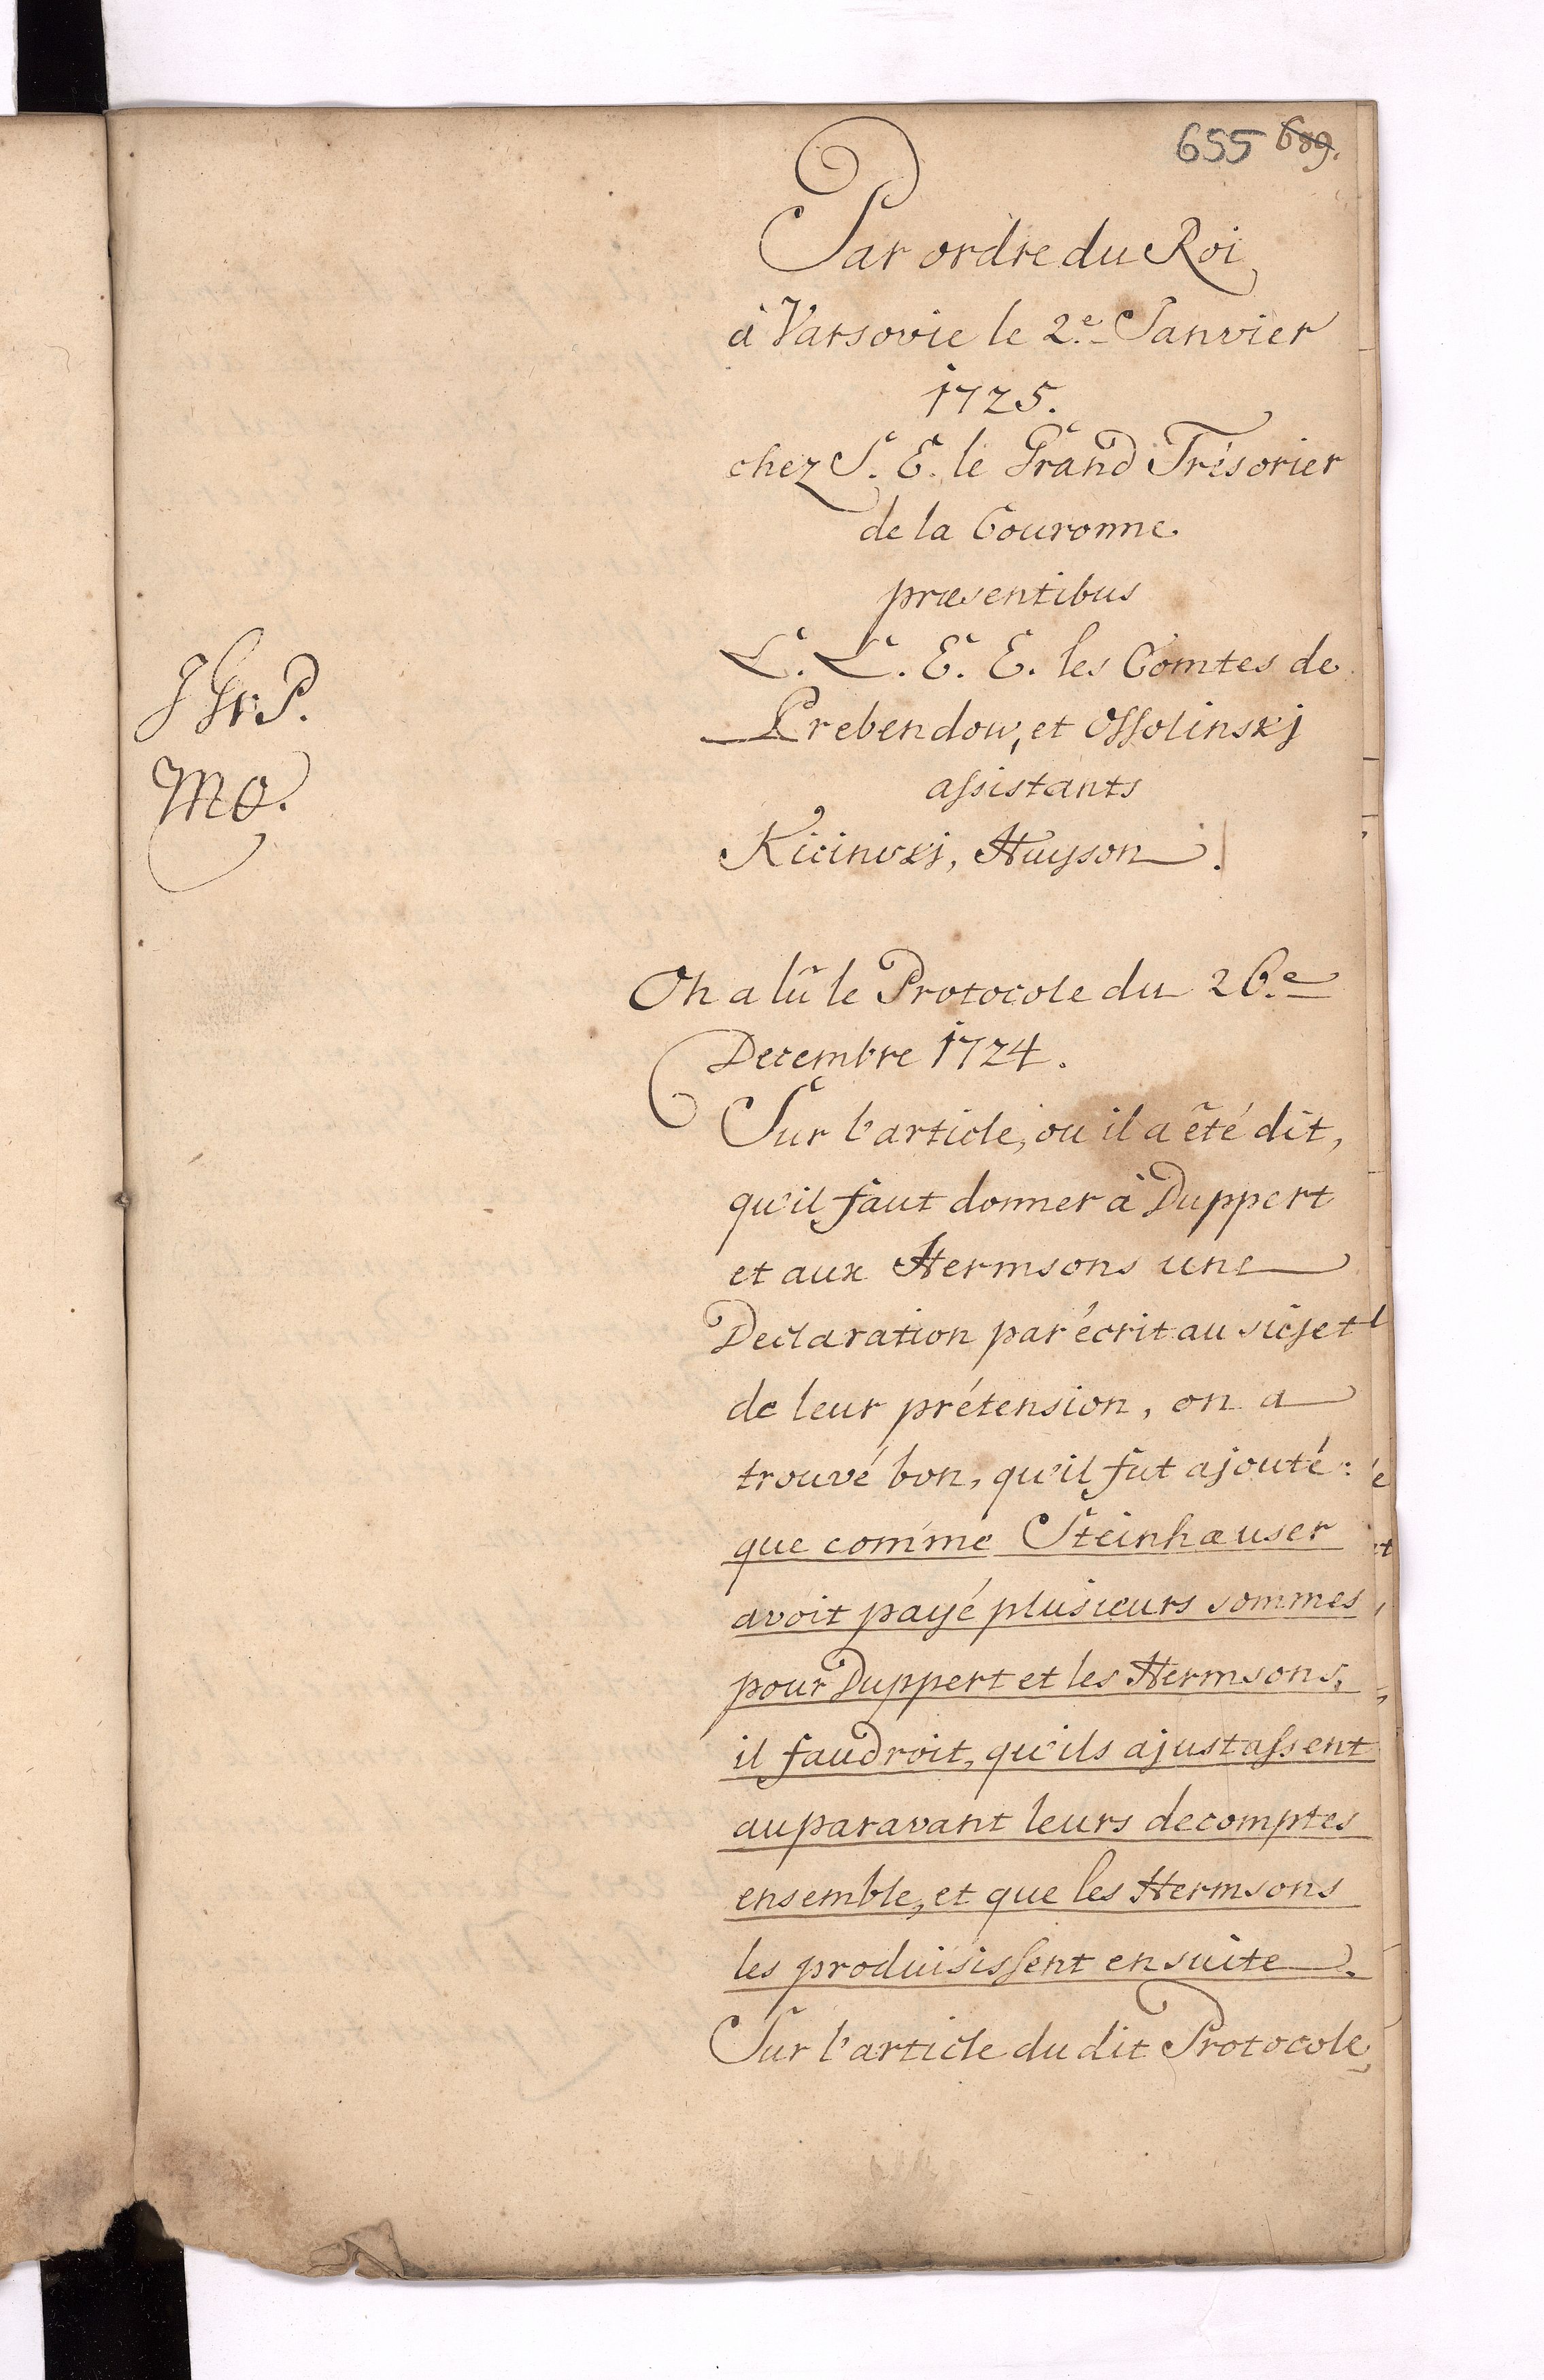 655 689.
Par ordre du Roi
à Varsovie le 2.e Janvier
1725.
chez S. E. le Grand Trésorier
de la Couronne.
præsentibus
L. L. E. E. les Comtes de
Prebendow, et Ossolinskj
assistants
Kicinskj, Huyson.
J Gr P.
MO.
On a lû le Protocole du 26.e
Decembre 1724.
Sur l'article, ou il a êté dit,
qu'il faut donner à Duppert
et aux Hermsons une
Declaration par écrit au sujet
de leur prétension, on a
trouvé bon, qu'il fut ajouté:
que comme Steinhæuser
avoit payé plusieurs sommes
pour Duppert et les Hermsons,
il faudroit, qu'ils ajustassent
auparavant leurs decomptes
ensemble, et que les Hermsons
les produisissent ensuite.
Sur l'article du dit Protocole,